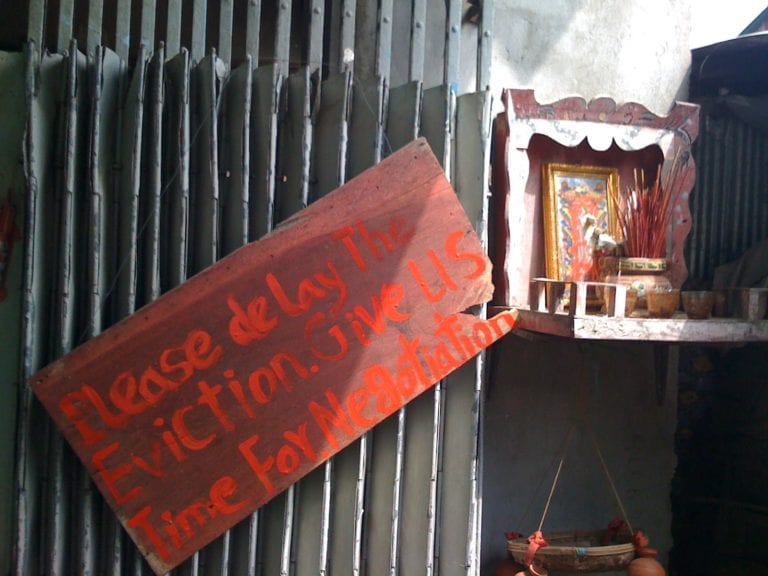 Please delay The
Eviction. Give US
Time For Negotiation